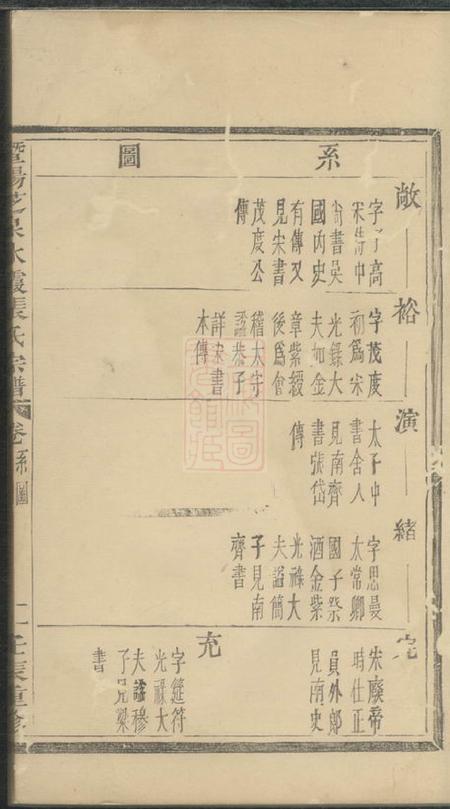 系圖
敞
字
高
宋
中
尚書吳
國內史
有傳又
見宋書
茂度公
傳
裕
字茂度
初為宋
光錄大
夫加金
章紫綬
後為會
稽太守
諡恭子
詳宋書
本傳
演
太子中
書舍人
見南齊
書張岱
傳
緒
字思曼
太常卿
國子祭
酒金紫
光祿大
夫諡簡
子見南
齊書
完
宋廢帝
時仕正
員外郎
見南史
充
字延符
光祿大
夫諡穆
子見梁
書
暨陽芝泉水霞張氏宗譜
卷
系圖
二
壬辰重修